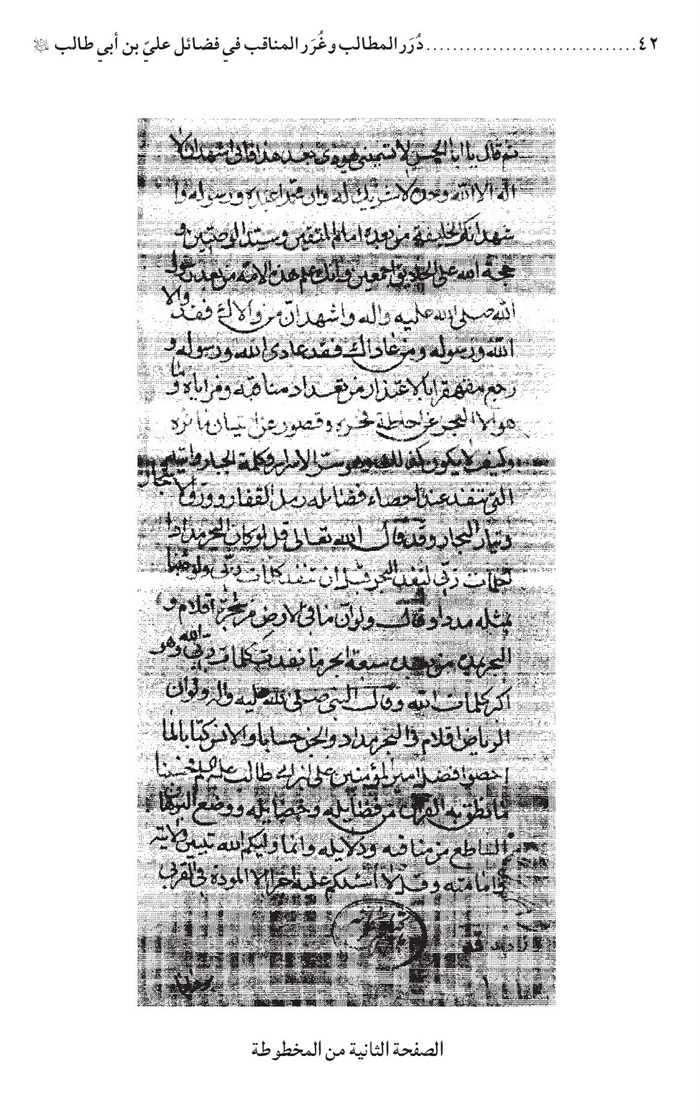 ٤٢ ................................ دُرَر المطالب وغُرَر المناقب في فضائل عليّ بن أبي طالب
ثم قال يا ابا الحسن لا بعد هذا فاني اشهد ان لا
اله الا الله وحده لا شريك له وان محمدا عبده ورسوله وا
شهد انك الخليفة من بعده امام المتقين وسيد الوصيين و
حجة الله على اجمعين وانك علم هذه الامة من بعد رسول
الله صلى الله عليه واله واشهد ان من والاك فقد والا
الله ورسوله ومن عاداك فقد عادى الله ورسوله و
رجع بالاعتذار من تعداد مناقبه ومزاياه وما
هو الا العجز عن احاطة وقصور عن اتيان ماثره
وكيف لا يكون كذلك وهو سر الاسرار وكلمة الجبار
التي تنفد عند احصاء فضائله رمل القفار وورق الاشجار
وتيار البحار وقد قال الله تعالى قل لو كان البحر مدادا
لكلمات ربي لنفد البحر قبل ان تنفد كلمات ربي ولو جئنا
بمثله مددا وقال ولو ان ما في الارض من شجرة اقلام و
البحر يمده من بعده سبعة ابحر ما نفدت كلمات الله وهو
اكبر كلمات الله وقال النبي صلى الله عليه واله ولو ان
الرياض اقلام والبحر مداد والجن حساب والانس كتاب لما
احصوا فضل امير المؤمنين علي بن ابي طالب عليه السلم
ما نطق به القران من فضايله وخصايله ووضع البرهان
الساطع من مناقبه ودلايله وانما وليكم الله تبيين ولايته
وامامته وقل لا اسئلكم عليه اجرا الا المودة في القربى
الصفحة الثانية من المخطوطة